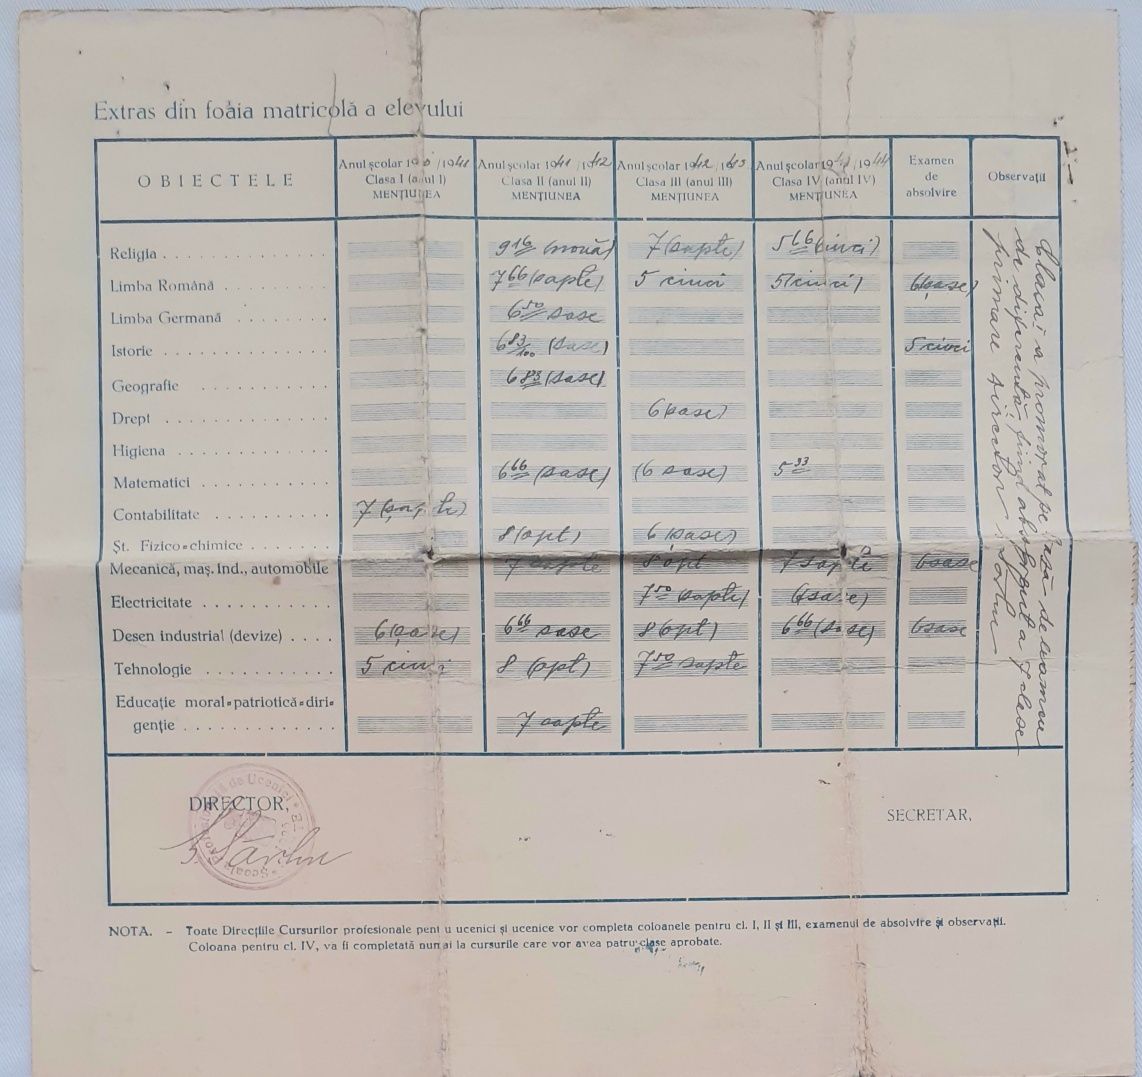 Extras din foaia matricolă a elevului
OBIECTELE
Anul școlar 1940/1941
Clasa I (anul I)
MENȚIUNEA
Anul școlar 1941/1942
Clasa II (anul II)
MENȚIUNEA
Anul școlar 1942/1943
Clasa III (anul III)
MENȚIUNEA
Anul școlar 1943/1944
Clasa IV (anul IV)
MENȚIUNEA
Examen
de
absolvire
Observații
Religia 9 16 (nouă) 7 (șapte) 5 66 (cinci)
Limba Română 7 66 (șapte) 5 cinci 5 (cinci) 6 (șase)
Limba Germană 6 50 șase
Istorie 6 83/100 (șase) 5 cinci
Geografie 6 83 (șase)
Drept 6 (șase)
Higiena
Matematici 6 66 (șase) (6 șase) 5 33
Contabilitate 7 (șapte)
Șt. Fizico-chimice 8 (opt) 6 (șase)
Mecanică, maș. Ind., automobile 7 șapte 8 opt 7 șapte 6 șase
Electricitate 7 50 (șapte) 6 (șase)
Desen industrial (devize) 6 (șase) 6 66 șase 8 (opt) 6 66 (șase) 6 șase
Tehnologie 5 cinci 8 (opt) 7 50 șapte
Educație moral-patriotică-diri-
genție 7 șapte
Clasa I a promovat pe bază de examen
de diferență fiind absolvent a 7 clase
primare director
DIRECTOR,
SECRETAR,
NOTA. – Toate Direcțiile Cursurilor profesionale pentru ucenici și ucenice vor completa coloanele pentru cl. I, II și III, examenul de absolvire și observații.
Coloana pentru cl. IV, va fi completată numai la cursurile care vor avea patru clase aprobate.